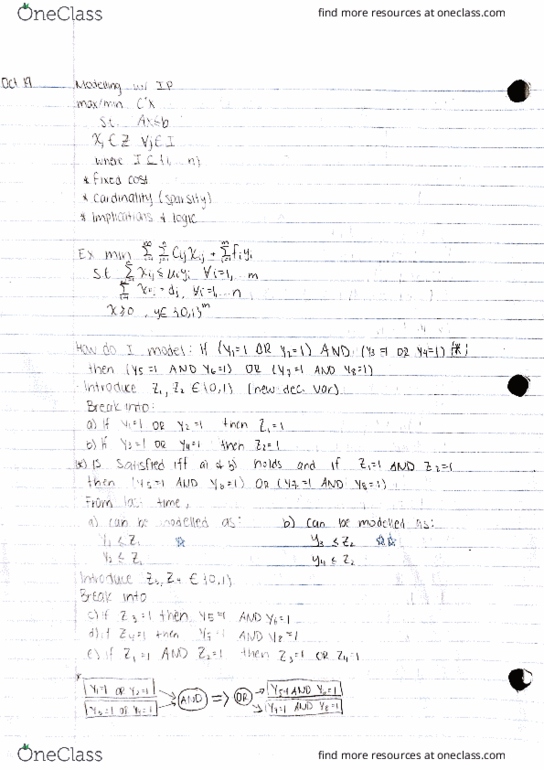 OneClass
find more resources at oneclass.com
Oct 19
Modelling w/ IP
max/min C^T x
s.t. Ax≤b
Xj ∈ Z ∀j ∈ I
where I ⊆ {1, n}
* Fixed cost
* Cardinality (sparsity)
* Implications & logic
Ex min Σ Σ Cij Xij + Σ fi yi
s.t. Σ Xij ≤ ui yi ∀i=1,.. m
Σ Xij = dj, ∀j=1,.. n
X≥0, y∈{0,1}^m
How do I model: If (Y1=1 OR Y2=1) AND (Y3=1 OR Y4=1) (*)
then (Y5=1 AND Y6=1) OR (Y7=1 AND Y8=1)
Introduce Z1, Z2 ∈ {0,1} (new dec. var)
Break into:
a) If Y1=1 OR Y2=1 then Z1=1
b) If Y3=1 OR Y4=1 then Z2=1
(*) is satisfied iff a) & b) holds and if Z1=1 AND Z2=1
then (Y5=1 AND Y6=1) OR (Y7=1 AND Y8=1)
From last time,
a) can be modelled as: b) can be modelled as:
Y1 ≤ Z1 ☆ Y3 ≤ Z2 ☆☆
Y2 ≤ Z1 Y4 ≤ Z2
Introduce Z3, Z4 ∈ {0,1}
Break into
c) if Z3=1 then Y5=1 AND Y6=1
d) if Z4=1 then Y7=1 AND Y8=1
e) if Z1=1 AND Z2=1 then Z3=1 OR Z4=1
Y1=1 OR Y2=1
Y3=1 OR Y4=1
AND ⇒ OR
Y5=1 AND Y6=1
Y7=1 AND Y8=1
OneClass
find more resources at oneclass.com